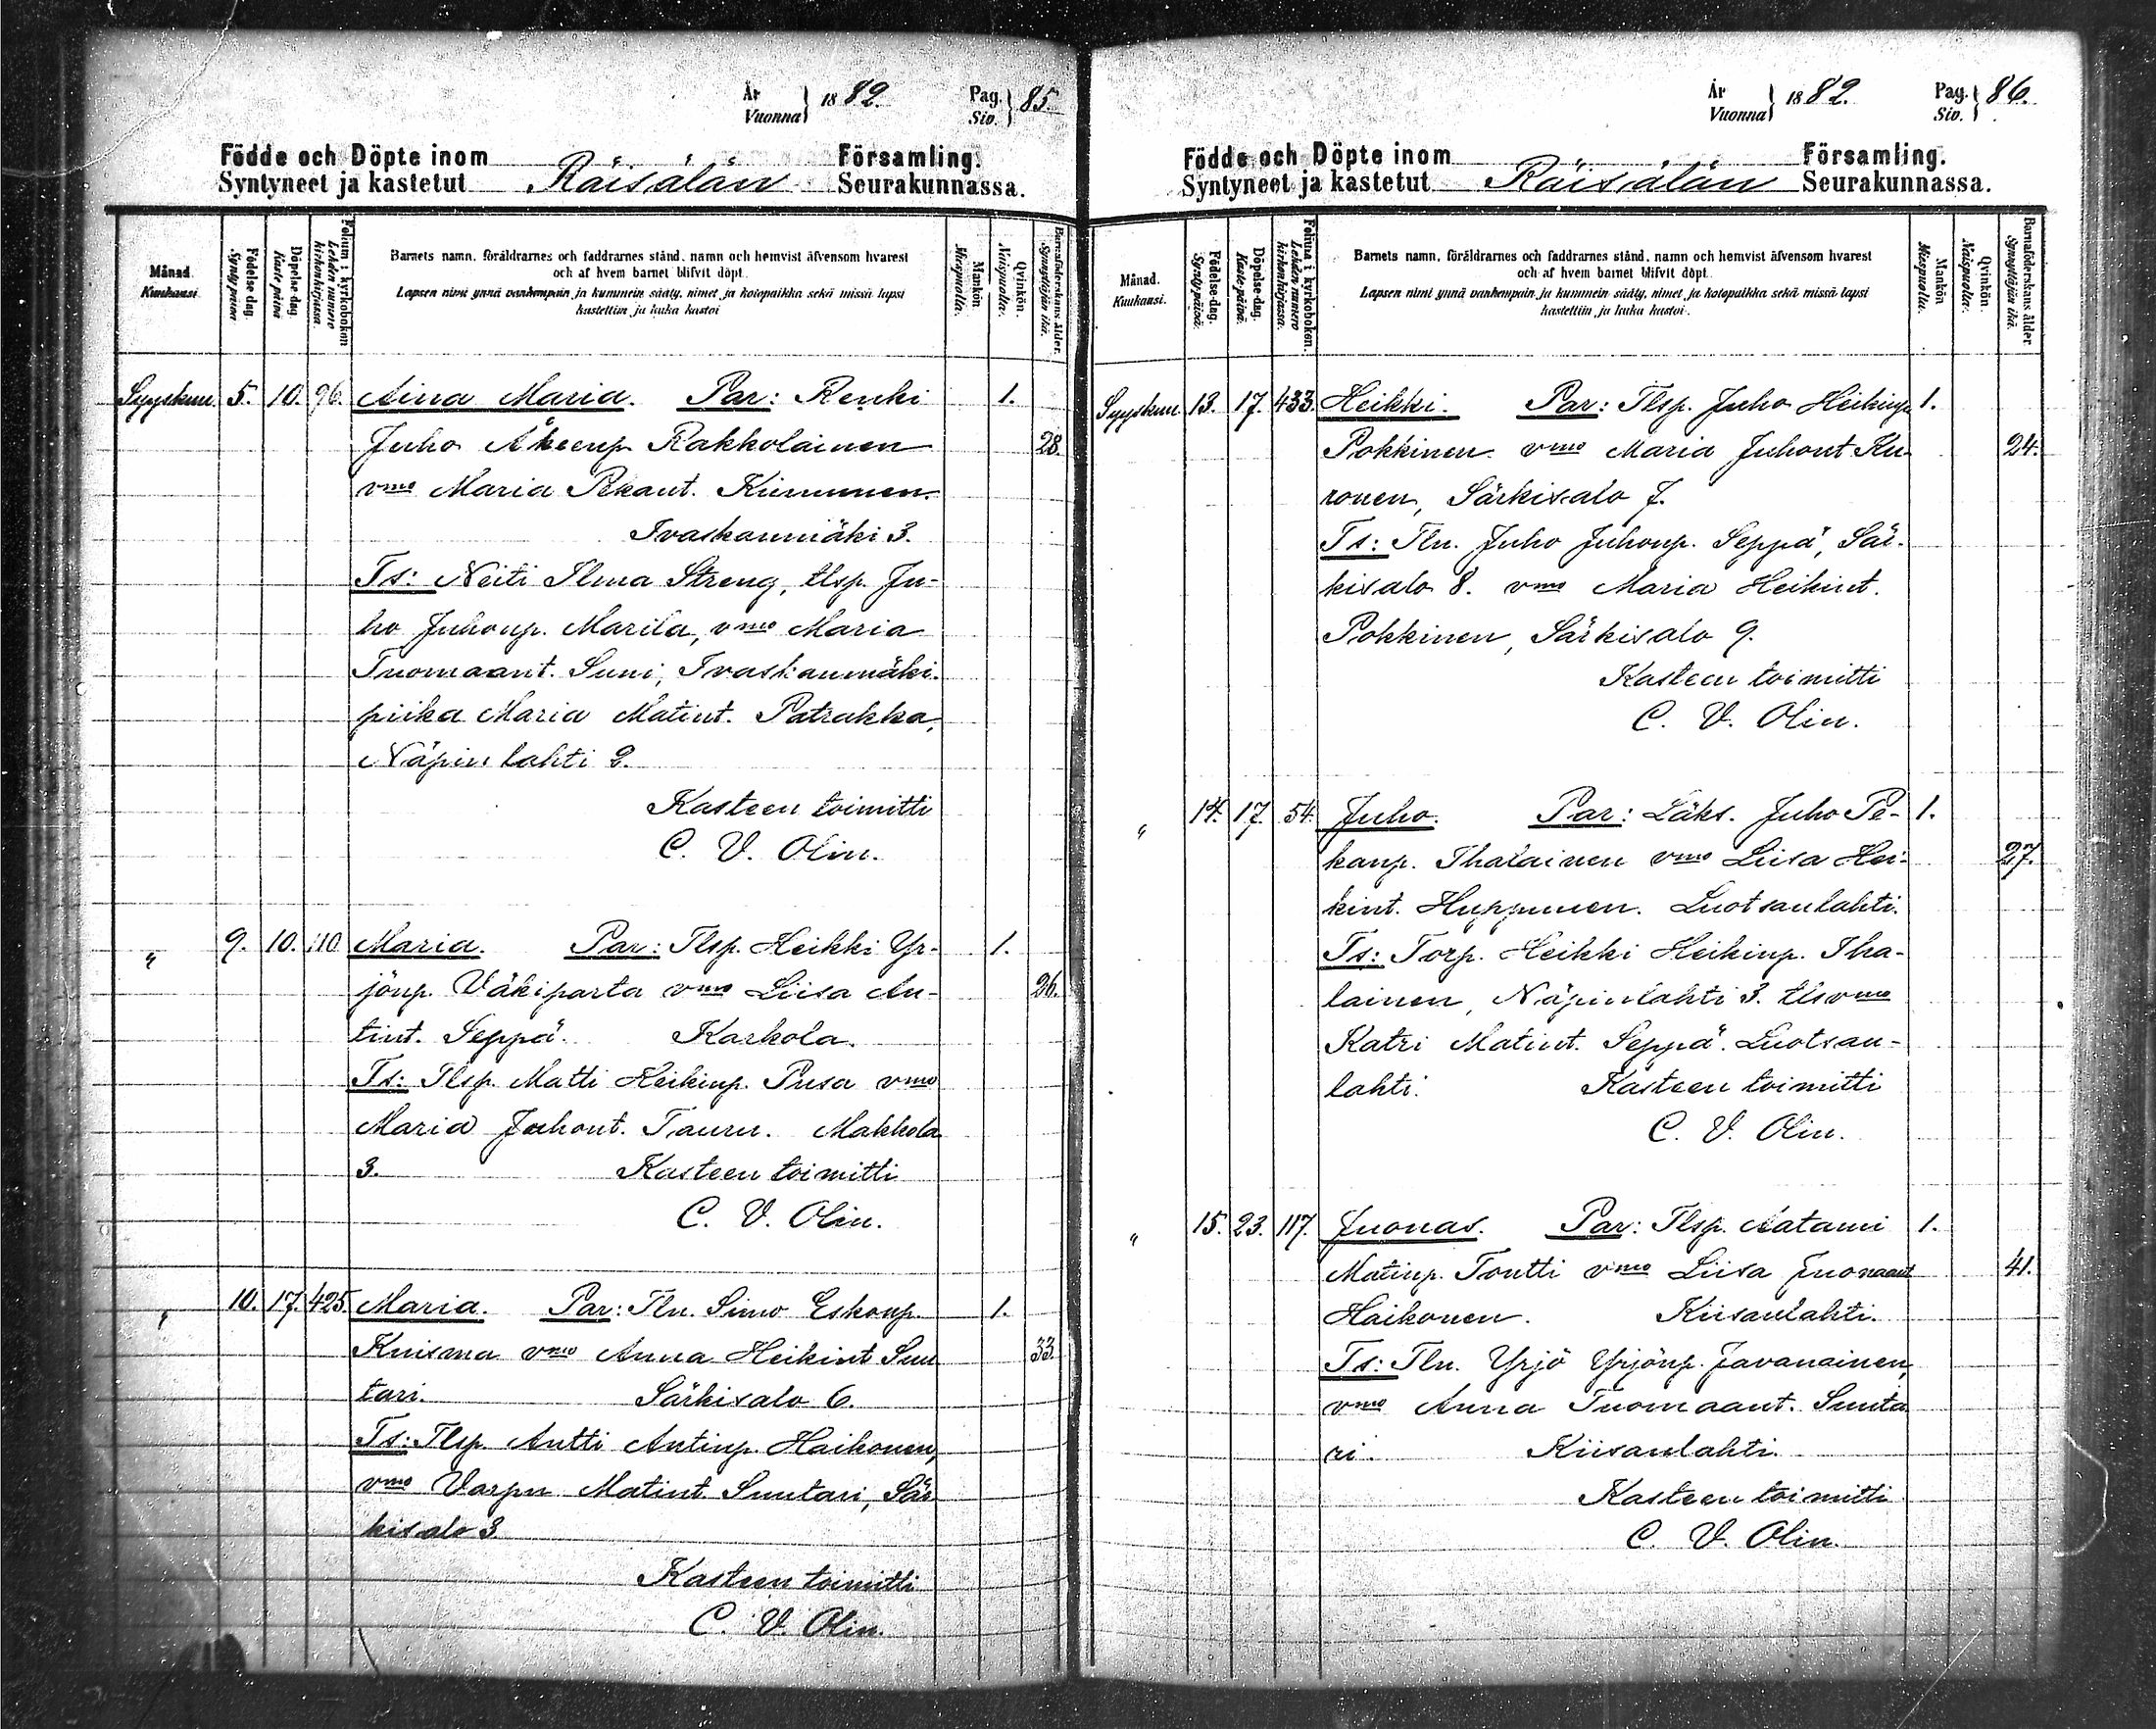 År
Vuonna } 1882.
Pag.
Siv. } 85.
Födde och Döpte inom
Syntyneet ja kastetut Räisälän
Församling.
Seurakunnassa.
Månad. Kuukausi.
Födelse-dag. Syntypäivä
Döpelse-dag. Kaste-päivä
Folium i kyrkoboken Lehden numero kirkonkirjassa.
Barnets namn, föräldrarnes och faddrarnes stånd, namn och hemvist äfvensom hvarest
och af hvem barnet blifvit döpt.
Lapsen nimi ynnä vanhempain ja kummein sääty, nimet ja kotopaikka sekä missä lapsi
kastettiin ja kuka kastoi
Mankön. Miespuolia.
Qvinkön. Naispuolia.
Barnaföderskans ålder. Synnyttäjän ikä.
Syyskuu 5. 10. 96. Aina Maria. Par: Renki 1.
Juho Akeenp. Rakkolainen 28.
vmo Maria Pekant. Kiinunen.
Ivaskanmäki 3.
Ts: Neiti Ilma Streng, tlsp. Ju-
ho Juhonp. Marila, vmo Maria
Tuomaant. Suni, Ivaskanmäki.
piika Maria Matint. Patrakka,
Näpinlahti 2.
Kasteen toimitti
C. V. Olin.
" 9. 10. 110. Maria. Par: Tlsp. Heikki Yr- 1.
jönp. Väkiparta vmo Liisa An- 26.
tint. Seppä. Karkola.
Ts: Tlsp. Matti Heikinp. Pusa vmo
Maria Juhont. Tauru. Makkola
3. Kasteen toimitti
C. V. Olin.
" 10. 17. 425. Maria. Par: Tln. Simo Eskonp. 1.
Kuisma vmo Anna Heikint Suu 33.
tari. Särkisalo 6.
Ts: Tlsp. Antti Antinp. Haikonen,
vmo Varpu Matint. Suutari, Sär
kisalo 3.
Kasteen toimitti
C. V. Olin.
År
Vuonna } 1882.
Pag.
Siv. } 86.
Födde och Döpte inom
Syntyneet ja kastetut Räisälän
Församling.
Seurakunnassa.
Månad. Kuukausi.
Födelse-dag. Syntypäivä.
Döpelse-dag. Kaste-päivä.
Folium i kyrkoboken. Lehden numero kirkonkirjassa.
Barnets namn, föräldrarnes och faddrarnes stånd, namn och hemvist äfvensom hvarest
och af hvem barnet blifvit döpt.
Lapsen nimi ynnä vanhempain ja kummein sääty, nimet ja kotopaikka sekä missä lapsi
kastettiin ja kuka kastoi.
Mankön Miespuolia.
Qvinkön. Naispuolia.
Barnaföderskans ålder Synnyttäjän ikä.
Syyskuu 13. 17. 433. Heikki. Par: Tlsp. Juho Heikinp. 1.
Pokkinen vmo Maria Juhont Ku- 24.
ronen, Särkisalo 7.
Ts: Tln. Juho Juhonp. Seppä, Sär-
kisalo 8. vmo Maria Heikint.
Pokkinen, Särkisalo 9.
Kasteen toimitti
C. V. Olin.
" 14. 17. 54. Juho. Par: Läks. Juho Pe- 1.
kanp. Ihalainen vmo Liisa Hei- 27.
kint. Huppunen. Luotsanlahti.
Ts: Torp. Heikki Heikinp. Iha-
lainen, Näpinlahti 3. tlsvmo
Katri Matint. Seppä. Luotsan-
lahti. Kasteen toimitti
C. V. Olin.
" 15. 23. 117. Juonas. Par: Tlsp. Aatami 1.
Matinp. Tontti vmo Liisa Juonaant 41.
Haikonen. Kiisanlahti.
Ts: Tln. Yrjö Yrjönp. Javanainen,
vmo Anna Tuomaant. Suuta
ri. Kiisanlahti.
Kasteen toimitti
C. V. Olin.